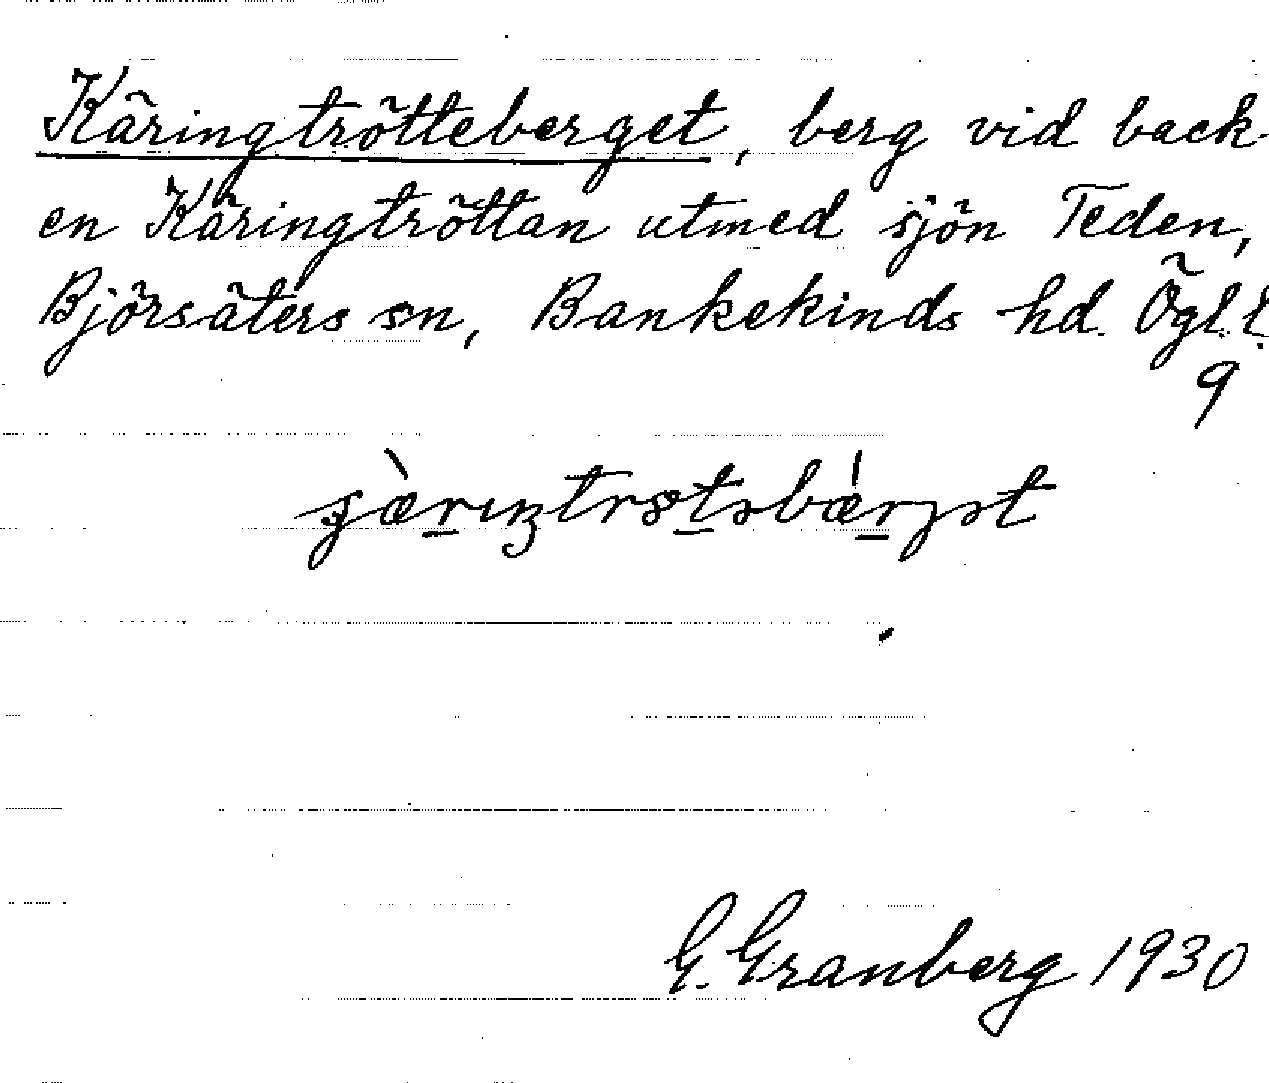 Käringtrötteberget, berg vid back-
en Käringtröttan utmed sjön Teden,
Björsäters sn, Bankekinds hd. Ögl.
9
G. Granberg 1930